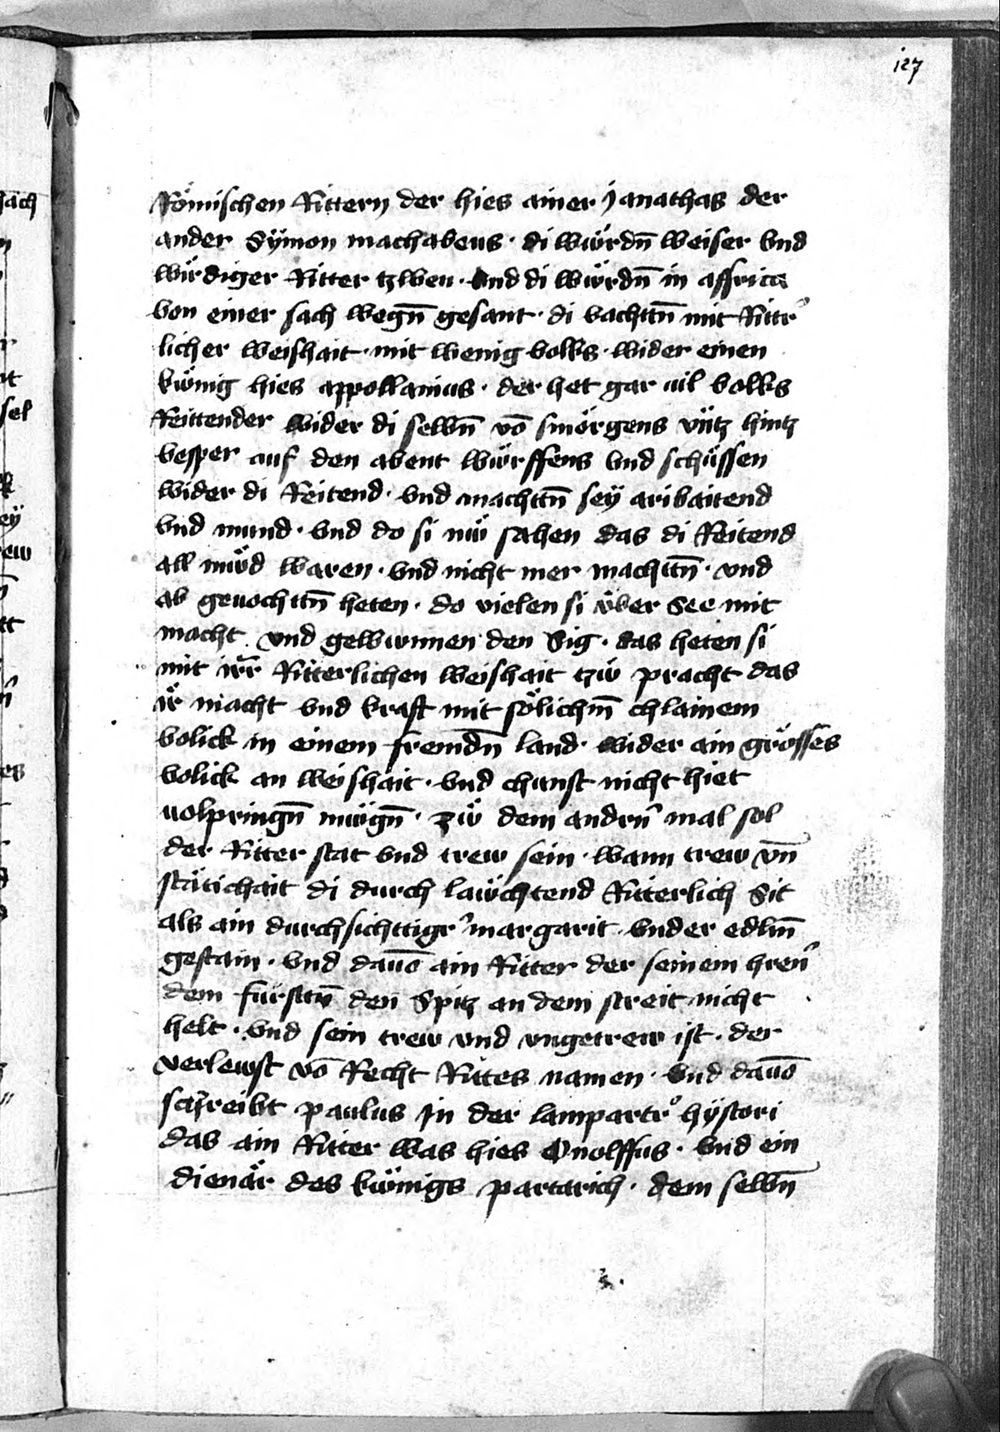 127
Römischen Rittern der hies ainer Janathas der
ander Sÿmon machabeus · di wúrdn̄ weiser vnd
wirdiger Ritter tzwen · vnd di wúrdn̄ in affrica
von einer sach wegn̄ gesant · di vachttn̄ mit Rittr̄
licher weishait · mit wenig volks · wider einen
kwͤnig hies appollanius · der het gar uil volks
Reittender wider di selbn̄ vō smörgens vͤntz hintz
vesper auf den abent wuͤrffens vnd schüssen
wider di Reitend · vnd machttn̄ seÿ aribaitend
vnd muͤd · vnd do si nwͤ sahen das di Reitend
all mwͤd waren · vnd nicht mer machttn̄ · vnd
ab geuochttn̄ heten · do vielen si vͤber See mit
macht · vnd gewunnen den Sig · das heten si
mit irr̄ Ritterlichen weishait tzwͤ pracht das
ir macht vnd kraft mit söilichm̄ chlainem
volick in einem fremdn̄ land · wider ain grösses
volick an weishait · vnd chunst nicht hiet
uolpringn̄ mwͤgn̄ · zwͤ dem andrn̄ mal sol
der Ritter stat vnd trew sein · wann trew vn̄
stätichait di durch lawͤchtend Ritterlich Sit
als ain durchsichttigr̄ margarit · vnder edlm̄
gestain · vnd dauō ain Ritter der seinem hren̄
dem fürsttn̄ den Spitz an dem streit nicht
helt · vnd sein trew vnd vngetrew ist · der
verlewst vō Recht Rittes namen · vnd dauō
schreibt paulus in der lampartr̄ hÿstori
das ain Ritter was hies Onolffus · vnd ein
dienär des kwͤnigs partarich · dem selbn̄